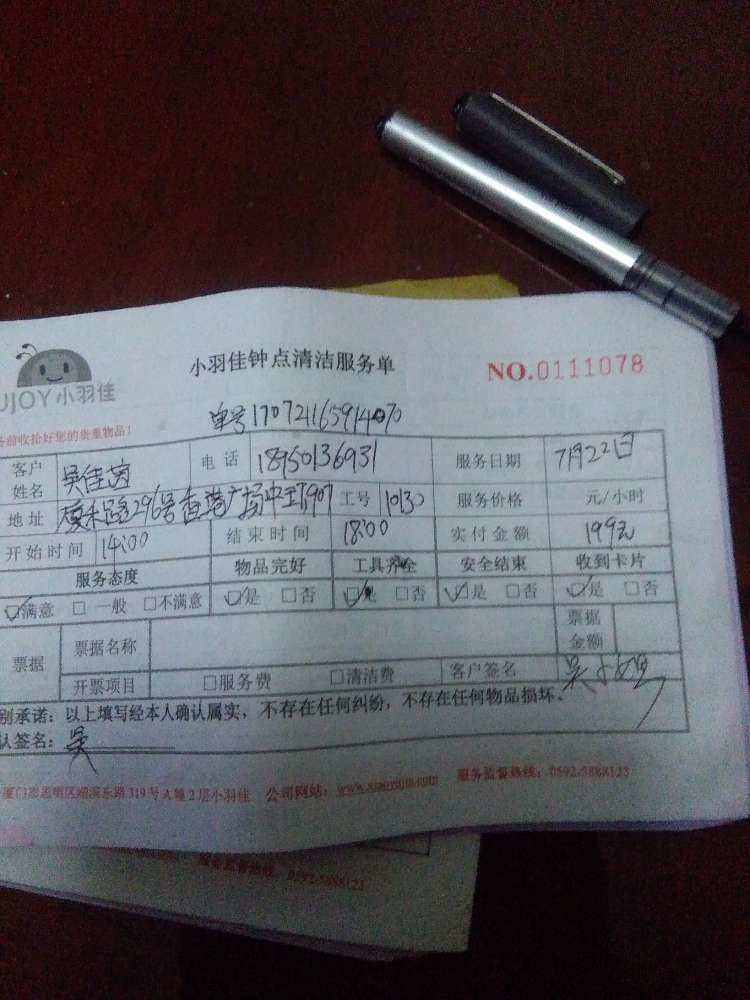 小羽佳钟点清洁服务单
NO.0111078
UJOY小羽佳
单号17072165914070
务前收拾好您的贵重物品!
客户姓名 吴佳茵 电话 18950136931 服务日期 7月22日
地址 厦禾路296号 广场中 1907 工号 10130 服务价格 元/小时
开始时间 14:00 结束时间 18:00 实付金额 199元
服务态度 物品完好 工具齐全 安全结束 收到卡片
☑满意 □一般 □不满意 ☑是 □否 ☑是 □否 ☑是 □否 ☑是 □否
票据 票据名称 票据金额
开票项目 □服务费 □清洁费 客户签名 吴小姐
别承诺:以上填写经本人确认属实,不存在任何纠纷,不存在任何物品损坏。
认签名:吴
厦门市思明区 东路319号A幢2层小羽佳 公司网站:www.xiaoyujia.com 服务监督热线:0592-5888123
服务监督热线:0592-5888123